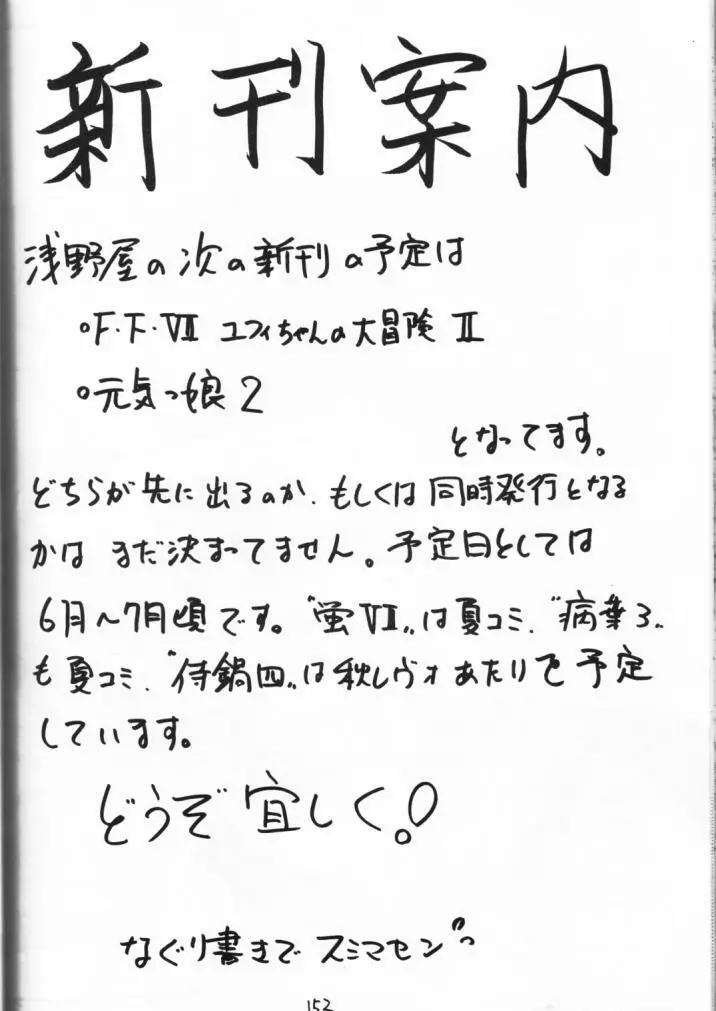 新刊案内
浅野屋の次の新刊の予定は
○F.F.Ⅶ ユフィちゃんの大冒険 Ⅱ
○元気っ娘2
となってます。
どちらが先に出るのか、もしくは同時発行となる
かは まだ決まってません。予定日としては
6月〜7月頃です。〝蛍Ⅶ〟は夏コミ、〝病葉3〟
も夏コミ、〝侍鍋四〟は秋レヴォあたりで予定
しています。
どうぞ宜しく!
なぐり書きで スミマセン
152